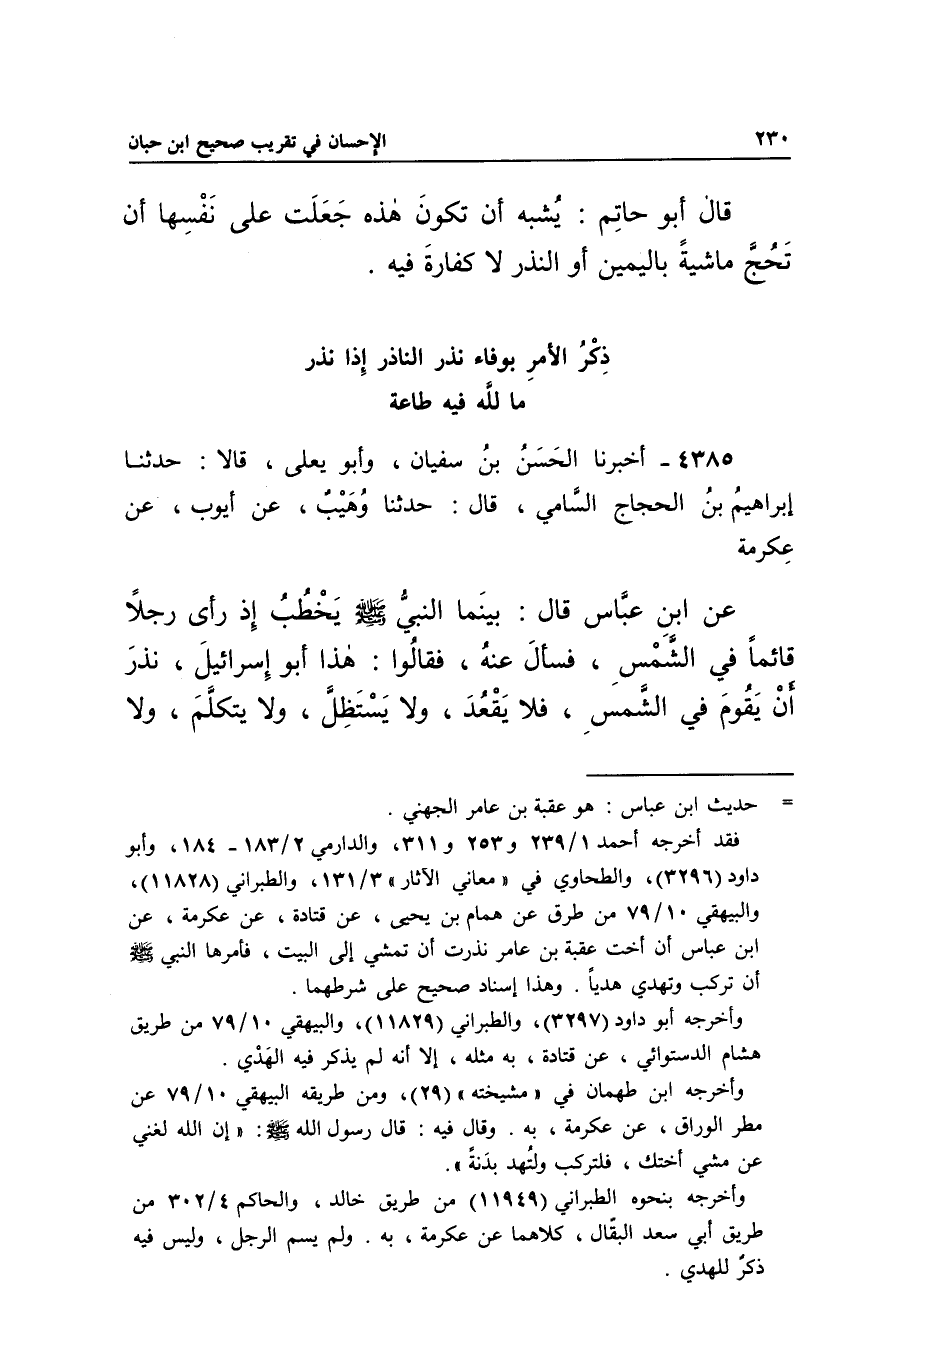 ٢٣٠ الإحسان في تقريب صحيح ابن حبان
قال أبو حاتِم : يُشبه أن تكونَ هٰذه جَعَلَت على نَفْسِها أن
تَحُجَّ ماشيةً باليمين أو النذر لا كفارةَ فيه .
ذِكْرُ الأمرِ بوفاء نذر الناذر إِذا نذر
ما للَّه فيه طاعة
٤٣٨٥ ـ أخبرنا الحَسَنُ بنُ سفيان ، وأبو يعلى ، قالا : حدثنا
إبراهيمُ بنُ الحجاج السَّامي ، قال : حدثنا وُهَيْبٌ ، عن أيوب ، عن
عِكرمة
عن ابنِ عبَّاس قال : بينَما النبيُّ ﷺ يَخْطُبُ إِذ رأى رجلاً
قائماً في الشَّمْسِ ، فسألَ عنهُ ، فقالُوا : هٰذا أبو إِسرائيلَ ، نذرَ
أَنْ يَقُومَ في الشَّمسِ ، فلا يَقْعُدَ ، ولا يَسْتَظِلَّ ، ولا يتكلَّمَ ، ولا
= حديث ابن عباس : هو عقبة بن عامر الجهني .
فقد أخرجه أحمد ٢٣٩/١ و٢٥٣ و٣١١، والدارمي ١٨٣/٢ ـ ١٨٤، وأبو
داود (٣٢٩٦)، والطحاوي في « معاني الآثار » ١٣١/٣، والطبراني (١١٨٢٨)،
والبيهقي ٧٩/١٠ من طرق عن همام بن يحيى ، عن قتادة ، عن عكرمة ، عن
ابن عباس أن أخت عقبة بن عامر نذرت أن تمشي إلى البيت ، فأمرها النبي ﷺ
أن تركب وتهدي هدياً . وهذا إسناد صحيح على شرطهما .
وأخرجه أبو داود (٣٢٩٧)، والطبراني (١١٨٢٩)، والبيهقي ٧٩/١٠ من طريق
هشام الدستوائي ، عن قتادة ، به مثله ، إلا أنه لم يذكر فيه الهَدْي .
وأخرجه ابن طهمان في « مشيخته » (٢٩)، ومن طريقه البيهقي ٧٩/١٠ عن
مطر الوراق ، عن عكرمة ، به . وقال فيه : قال رسول الله ﷺ: « إن الله لغني
عن مشي أختك ، فلتركب ولتُهد بدَنةً ».
وأخرجه بنحوه الطبراني (١١٩٤٩) من طريق خالد ، والحاكم ٣٠٢/٤ من
طريق أبي سعد البقَّال ، كلاهما عن عكرمة ، به . ولم يسم الرجل ، وليس فيه
ذكرٌ للهدي .